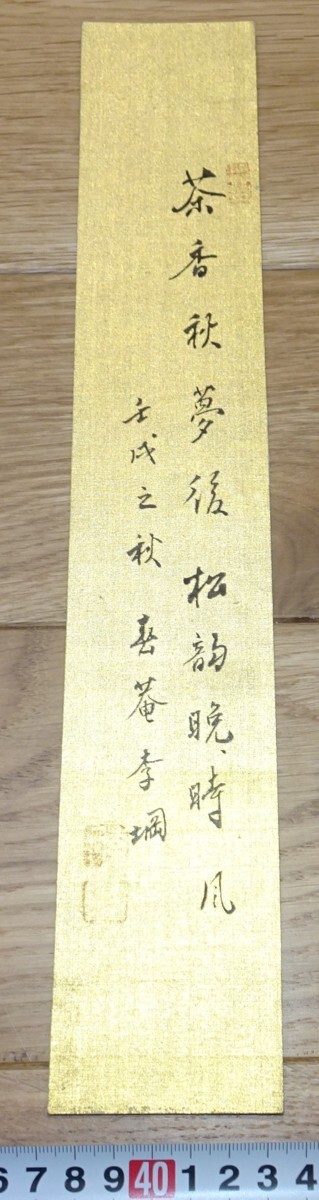 茶香秋夢後松韻晚時風
壬戌之秋 春菴李堈
6 7 8 9 40 1 2 3 4